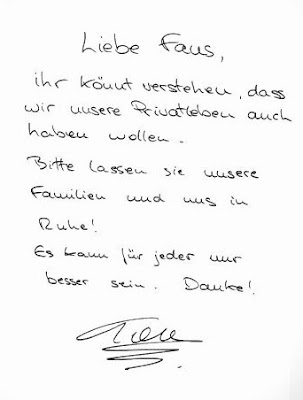 Liebe Fans,
ihr könnt verstehen, dass
wir unsere Privatleben auch
haben wollen.
Bitte lassen sie unsere
Familien und uns in
Ruhe!
Es kann für jeder nur
besser sein. Danke!